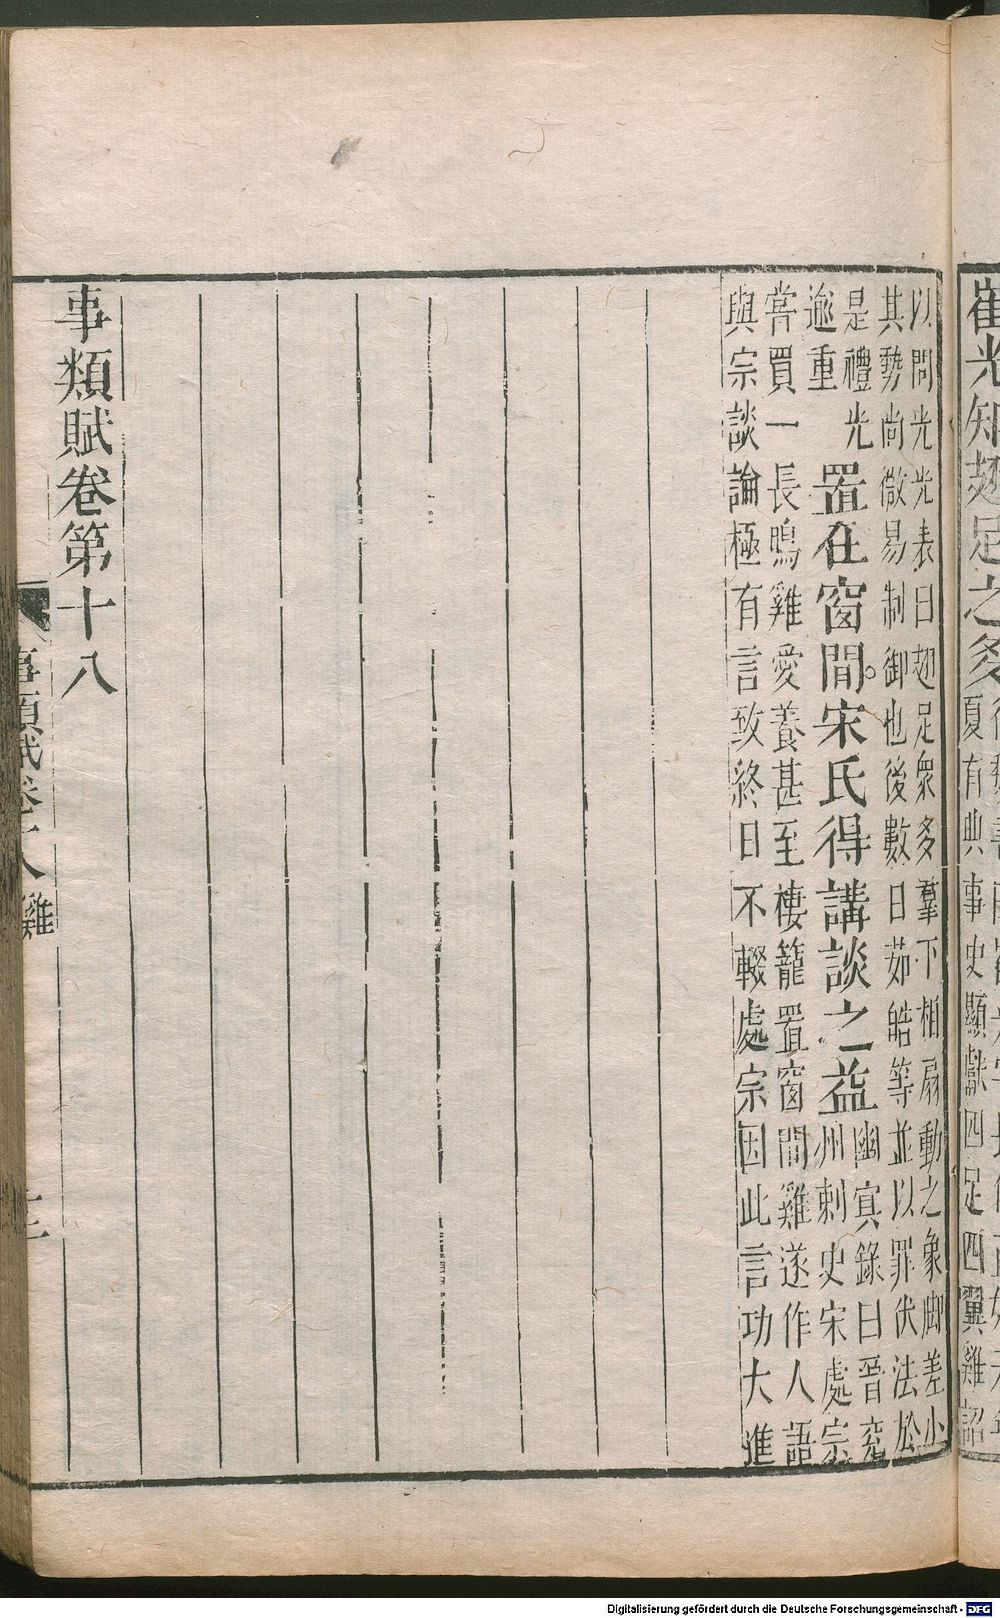 崔光知翅足之多
夏有典事史顯獻四足四翼雞詔
以問光光表曰翅足衆多羣下相扇動之象脚差小
其勢尚微易制御也後數日茹皓等並以罪伏法於
是禮光
逾重
置在窗間。宋氏得講談之益
幽㝠錄曰晉兗
州刺史宋處宗
嘗買一長鳴雞愛養甚至棲籠置窗間雞遂作人語
與宗談論極有言致終日不輟處宗因此言功大進
事類賦卷第十八
事類賦卷十八 雞
Digitalisierung gefördert durch die Deutsche Forschungsgemeinschaft - DFG